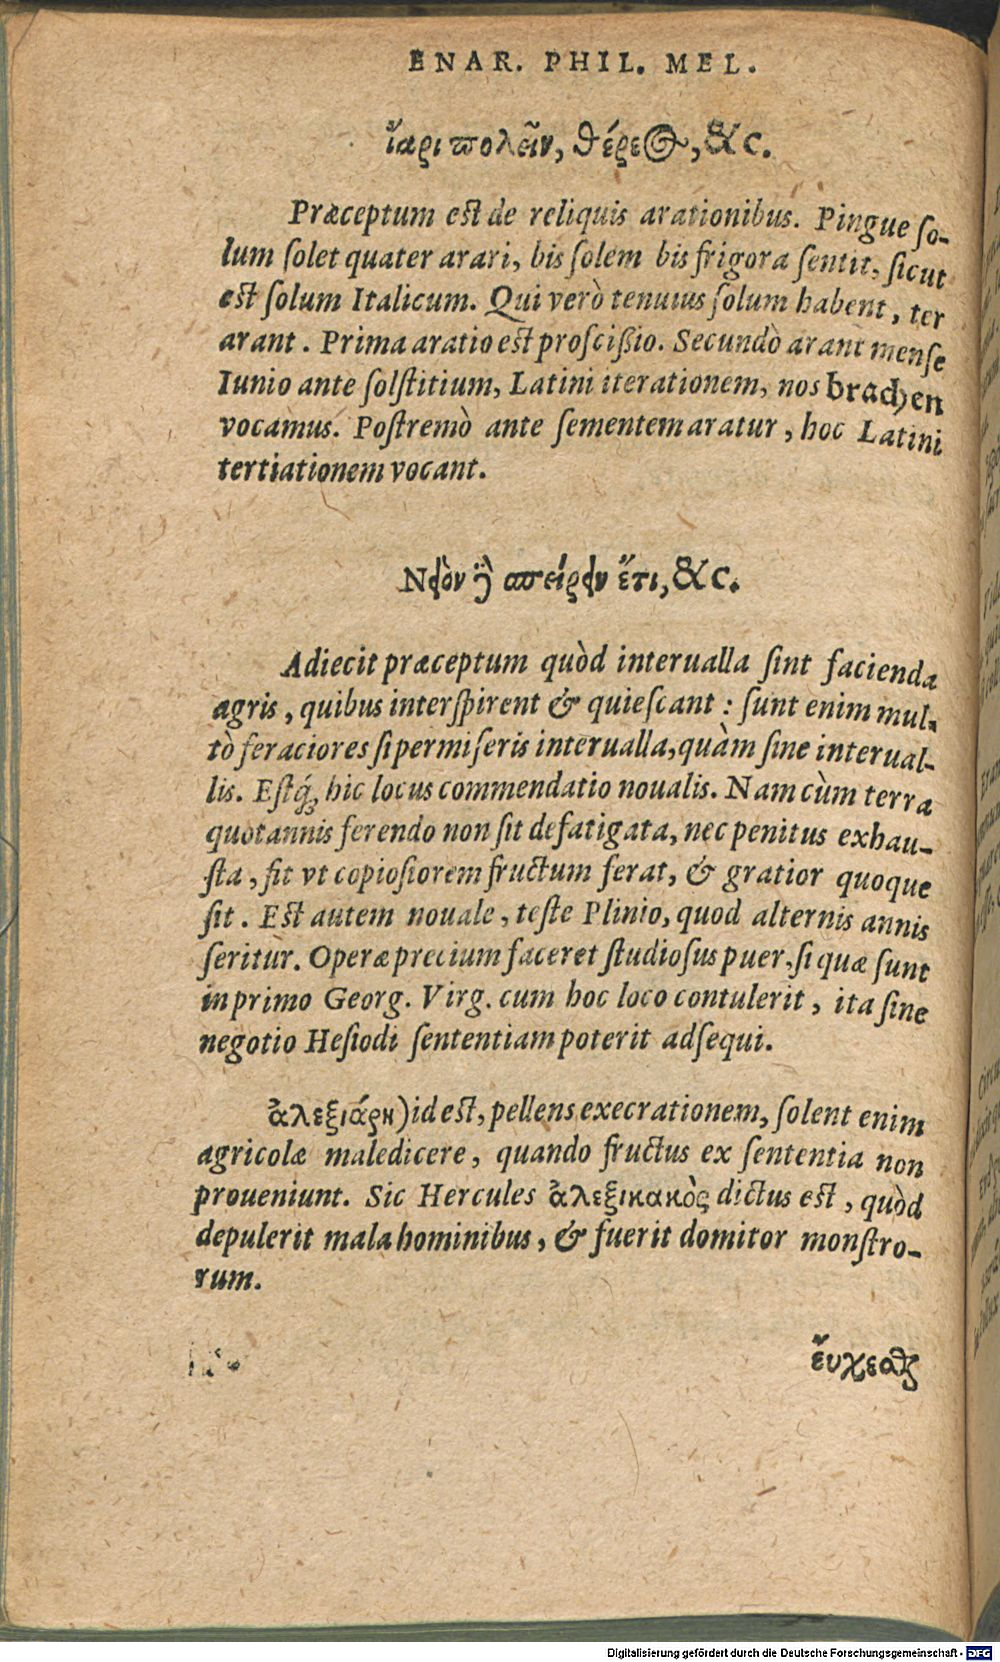 ENAR. PHIL. MEL.
ἴαρι πολεῖν, θέρεος, &c.
Præceptum est de reliquis arationibus. Pingue so-
lum solet quater arari, bis solem bis frigora sentit, sicut
est solum Italicum. Qui verò tenuius solum habent, ter
arant. Prima aratio est proscißio. Secundò arant mense
Iunio ante solstitium, Latini iterationem, nos brachen
vocamus. Postremò ante sementem aratur, hoc Latini
tertiationem vocant.
Νειὸν ἢ σπείρειν ἔτι, &c.
Adiecit præceptum quòd interualla sint facienda
agris, quibus interspirent & quiescant: sunt enim mul-
tò feraciores si permiseris interualla, quàm sine interual-
lis. Estq́; hic locus commendatio noualis. Nam cùm terra
quotannis ferendo non sit defatigata, nec penitus exhau-
sta, fit vt copiosiorem fructum ferat, & gratior quoque
sit. Est autem nouale, teste Plinio, quod alternis annis
seritur. Operæprecium faceret studiosus puer, si quæ sunt
in primo Georg. Virg. cum hoc loco contulerit, ita sine
negotio Hesiodi sententiam poterit adsequi.
ἀλεξιάρη) id est, pellens execrationem, solent enim
agricolæ maledicere, quando fructus ex sententia non
proueniunt. Sic Hercules ἀλεξικακὸς dictus est, quòd
depulerit mala hominibus, & fuerit domitor monstro-
rum.
ἔυχεσθαι
Digitalisierung gefördert durch die Deutsche Forschungsgemeinschaft - DFG